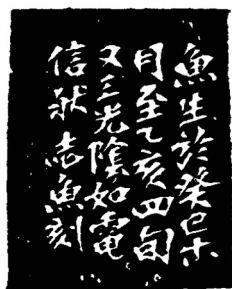 魚生於癸巳
月至乙亥四旬
又三光陰如電
信肰志魚刻